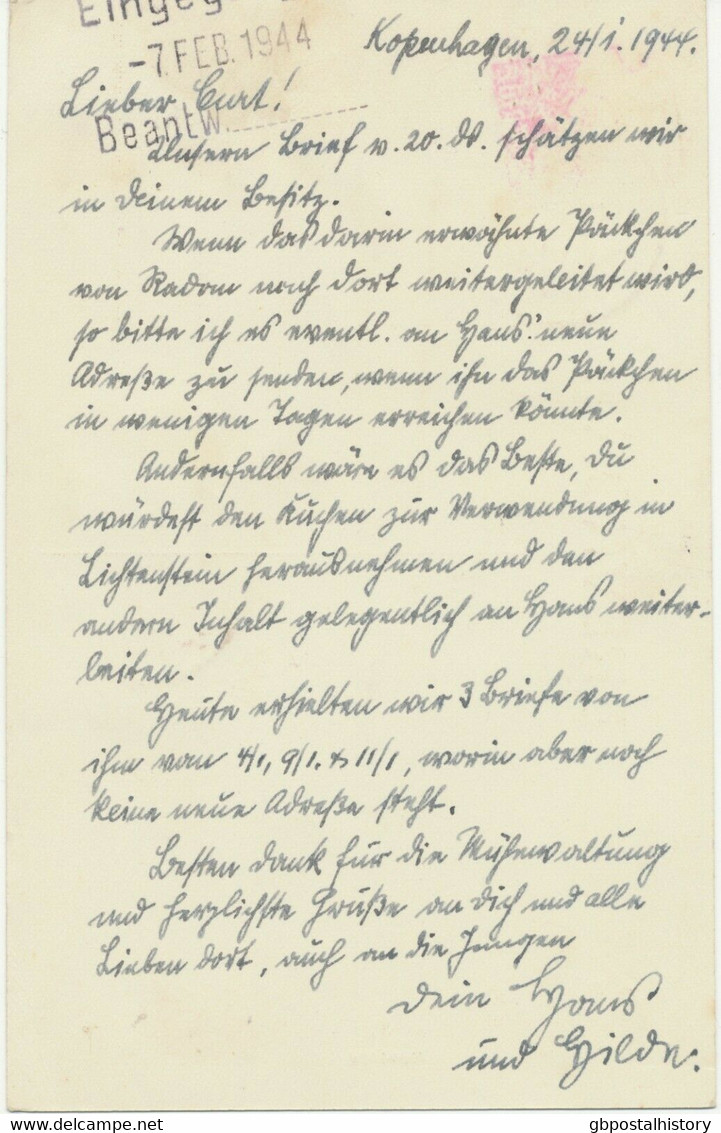 Eingeg
-7. FEB. 1944
Kopenhagen, 24/I. 1944.
Lieber Curt!
Beantw.
Unsern Brief v. 20. ds. schätzen wir
in Deinem Besitz.
Wenn das darin erwähnte Päckchen
von Radom nach dort weitergeleitet wird,
so bitte ich es eventl. an Hans' neue
Adreße zu senden, wenn ihn das Päckchen
in wenigen Tagen erreichen könnte.
Andernfalls wäre es das Beste, Du
würdest den Kuchen zur Verwendung in
Lichtenstein herausnehmen und den
andern Inhalt gelegentlich an Hans weiter-
leiten.
Heute erhielten wir 3 Briefe von
ihm vom 4/1, 9/1. & 11/1, worin aber noch
keine neue Adreße steht.
Besten Dank für die Mühewaltung
und herzlichste Grüße an Dich und alle
Lieben dort, auch an die Jungen
Dein Hans
und Hilde.
gbpostalhistory